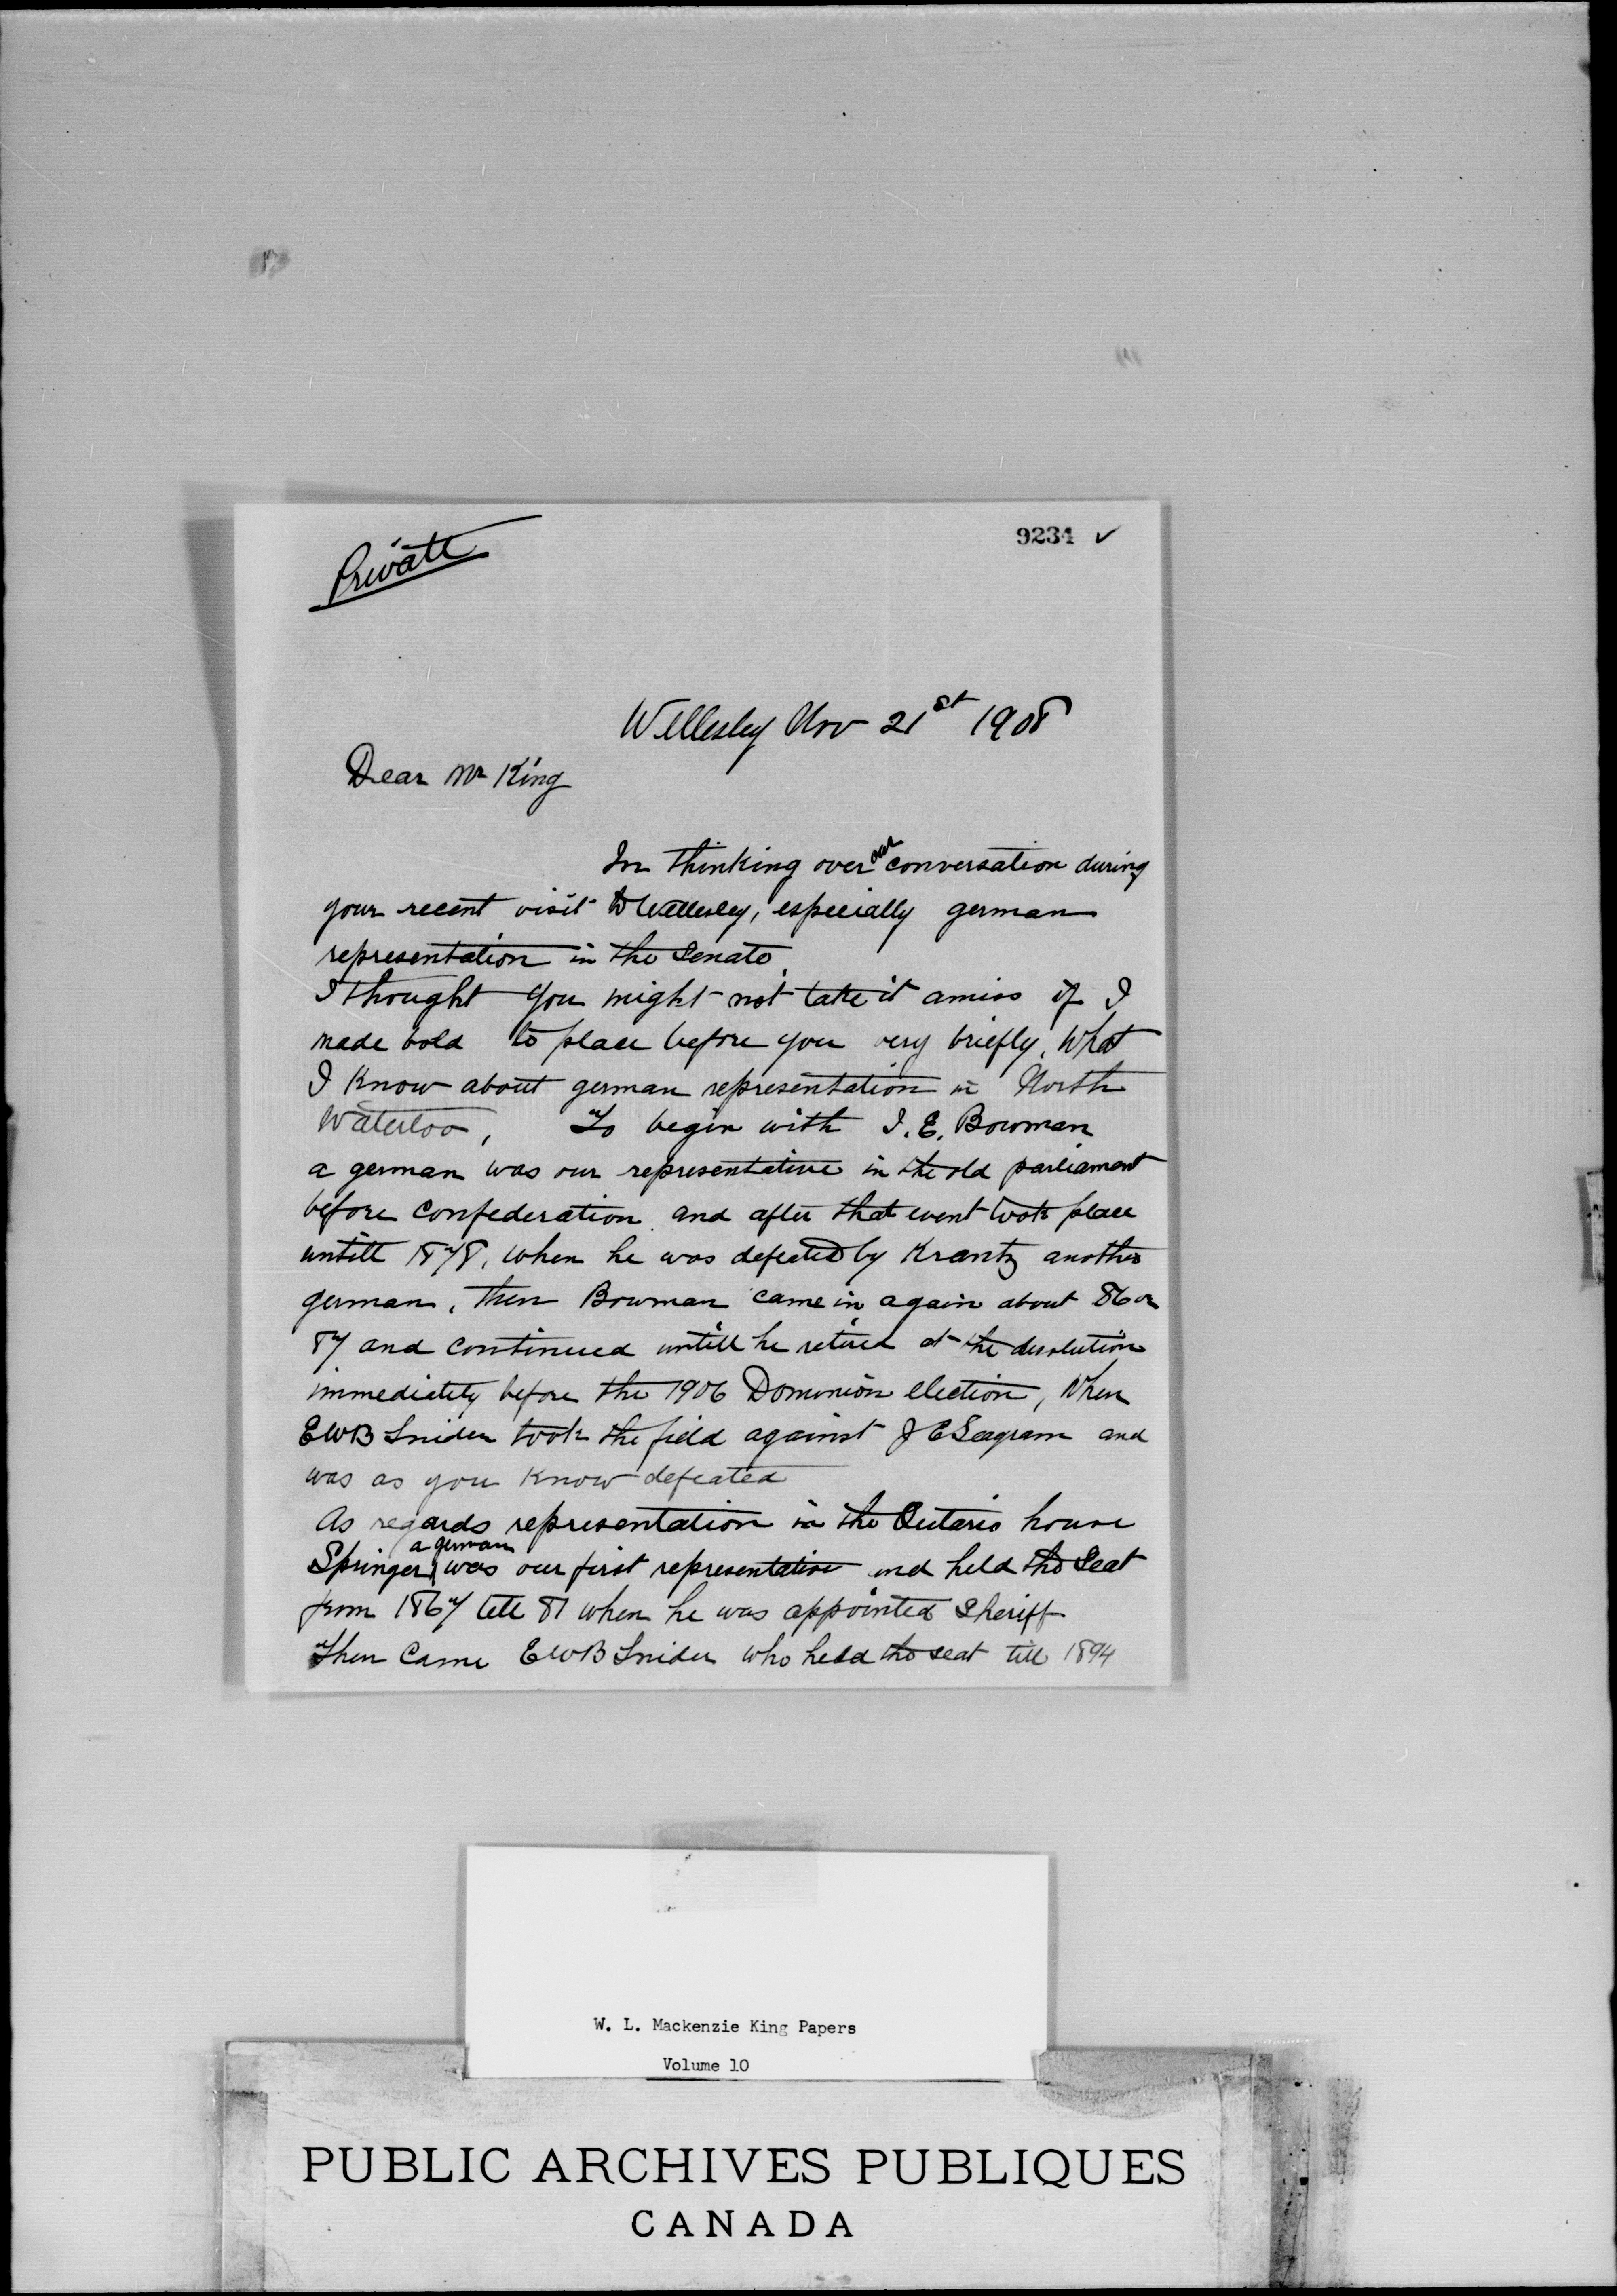 Private
9234 ✓
Wellesley Nov 21st 1908
Dear Mr King
In thinking over our conversation during
your recent visit to Wellesley, especially german
representation in the Senate
I thought you might not take it amiss if I
made bold to place before you very briefly, what
I know about german representation in North
Waterloo, To begin with I. E. Bowman
a german was our representative in the old parliament
before Confederation and after that event took place
untill 1878, when he was defeated by Krantz another
german, then Bowman came in again about 86 or
87 and continued untill he retired at the desolution
immedietely before the 1906 Dominion election, when
EWB Snider took the field against J E Seagram and
was as you know defeated
As regards representation in the Ontario house
Springer a german was our first representative and held the Seat
from 1867 till 81 when he was appointed Sheriff
Then Came EWB Snider who held the seat till 1894
W. L. Mackenzie King Papers
Volume 10
PUBLIC ARCHIVES PUBLIQUES
CANADA